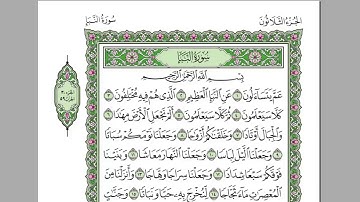 الجزء الثلاثون
سورة النبإ
سورة النبإ
بِسْمِ اللَّهِ الرَّحْمَٰنِ الرَّحِيمِ
عَمَّ يَتَسَاءَلُونَ ١ عَنِ النَّبَإِ الْعَظِيمِ ٢ الَّذِي هُمْ فِيهِ مُخْتَلِفُونَ ٣
كَلَّا سَيَعْلَمُونَ ٤ ثُمَّ كَلَّا سَيَعْلَمُونَ ٥ أَلَمْ نَجْعَلِ الْأَرْضَ مِهَادًا ٦
وَالْجِبَالَ أَوْتَادًا ٧ وَخَلَقْنَاكُمْ أَزْوَاجًا ٨ وَجَعَلْنَا نَوْمَكُمْ سُبَاتًا
٩ وَجَعَلْنَا اللَّيْلَ لِبَاسًا ١٠ وَجَعَلْنَا النَّهَارَ مَعَاشًا ١١ وَبَنَيْنَا
فَوْقَكُمْ سَبْعًا شِدَادًا ١٢ وَجَعَلْنَا سِرَاجًا وَهَّاجًا ١٣ وَأَنزَلْنَا مِنَ
الْمُعْصِرَاتِ مَاءً ثَجَّاجًا ١٤ لِّنُخْرِجَ بِهِ حَبًّا وَنَبَاتًا ١٥ وَجَنَّاتٍ